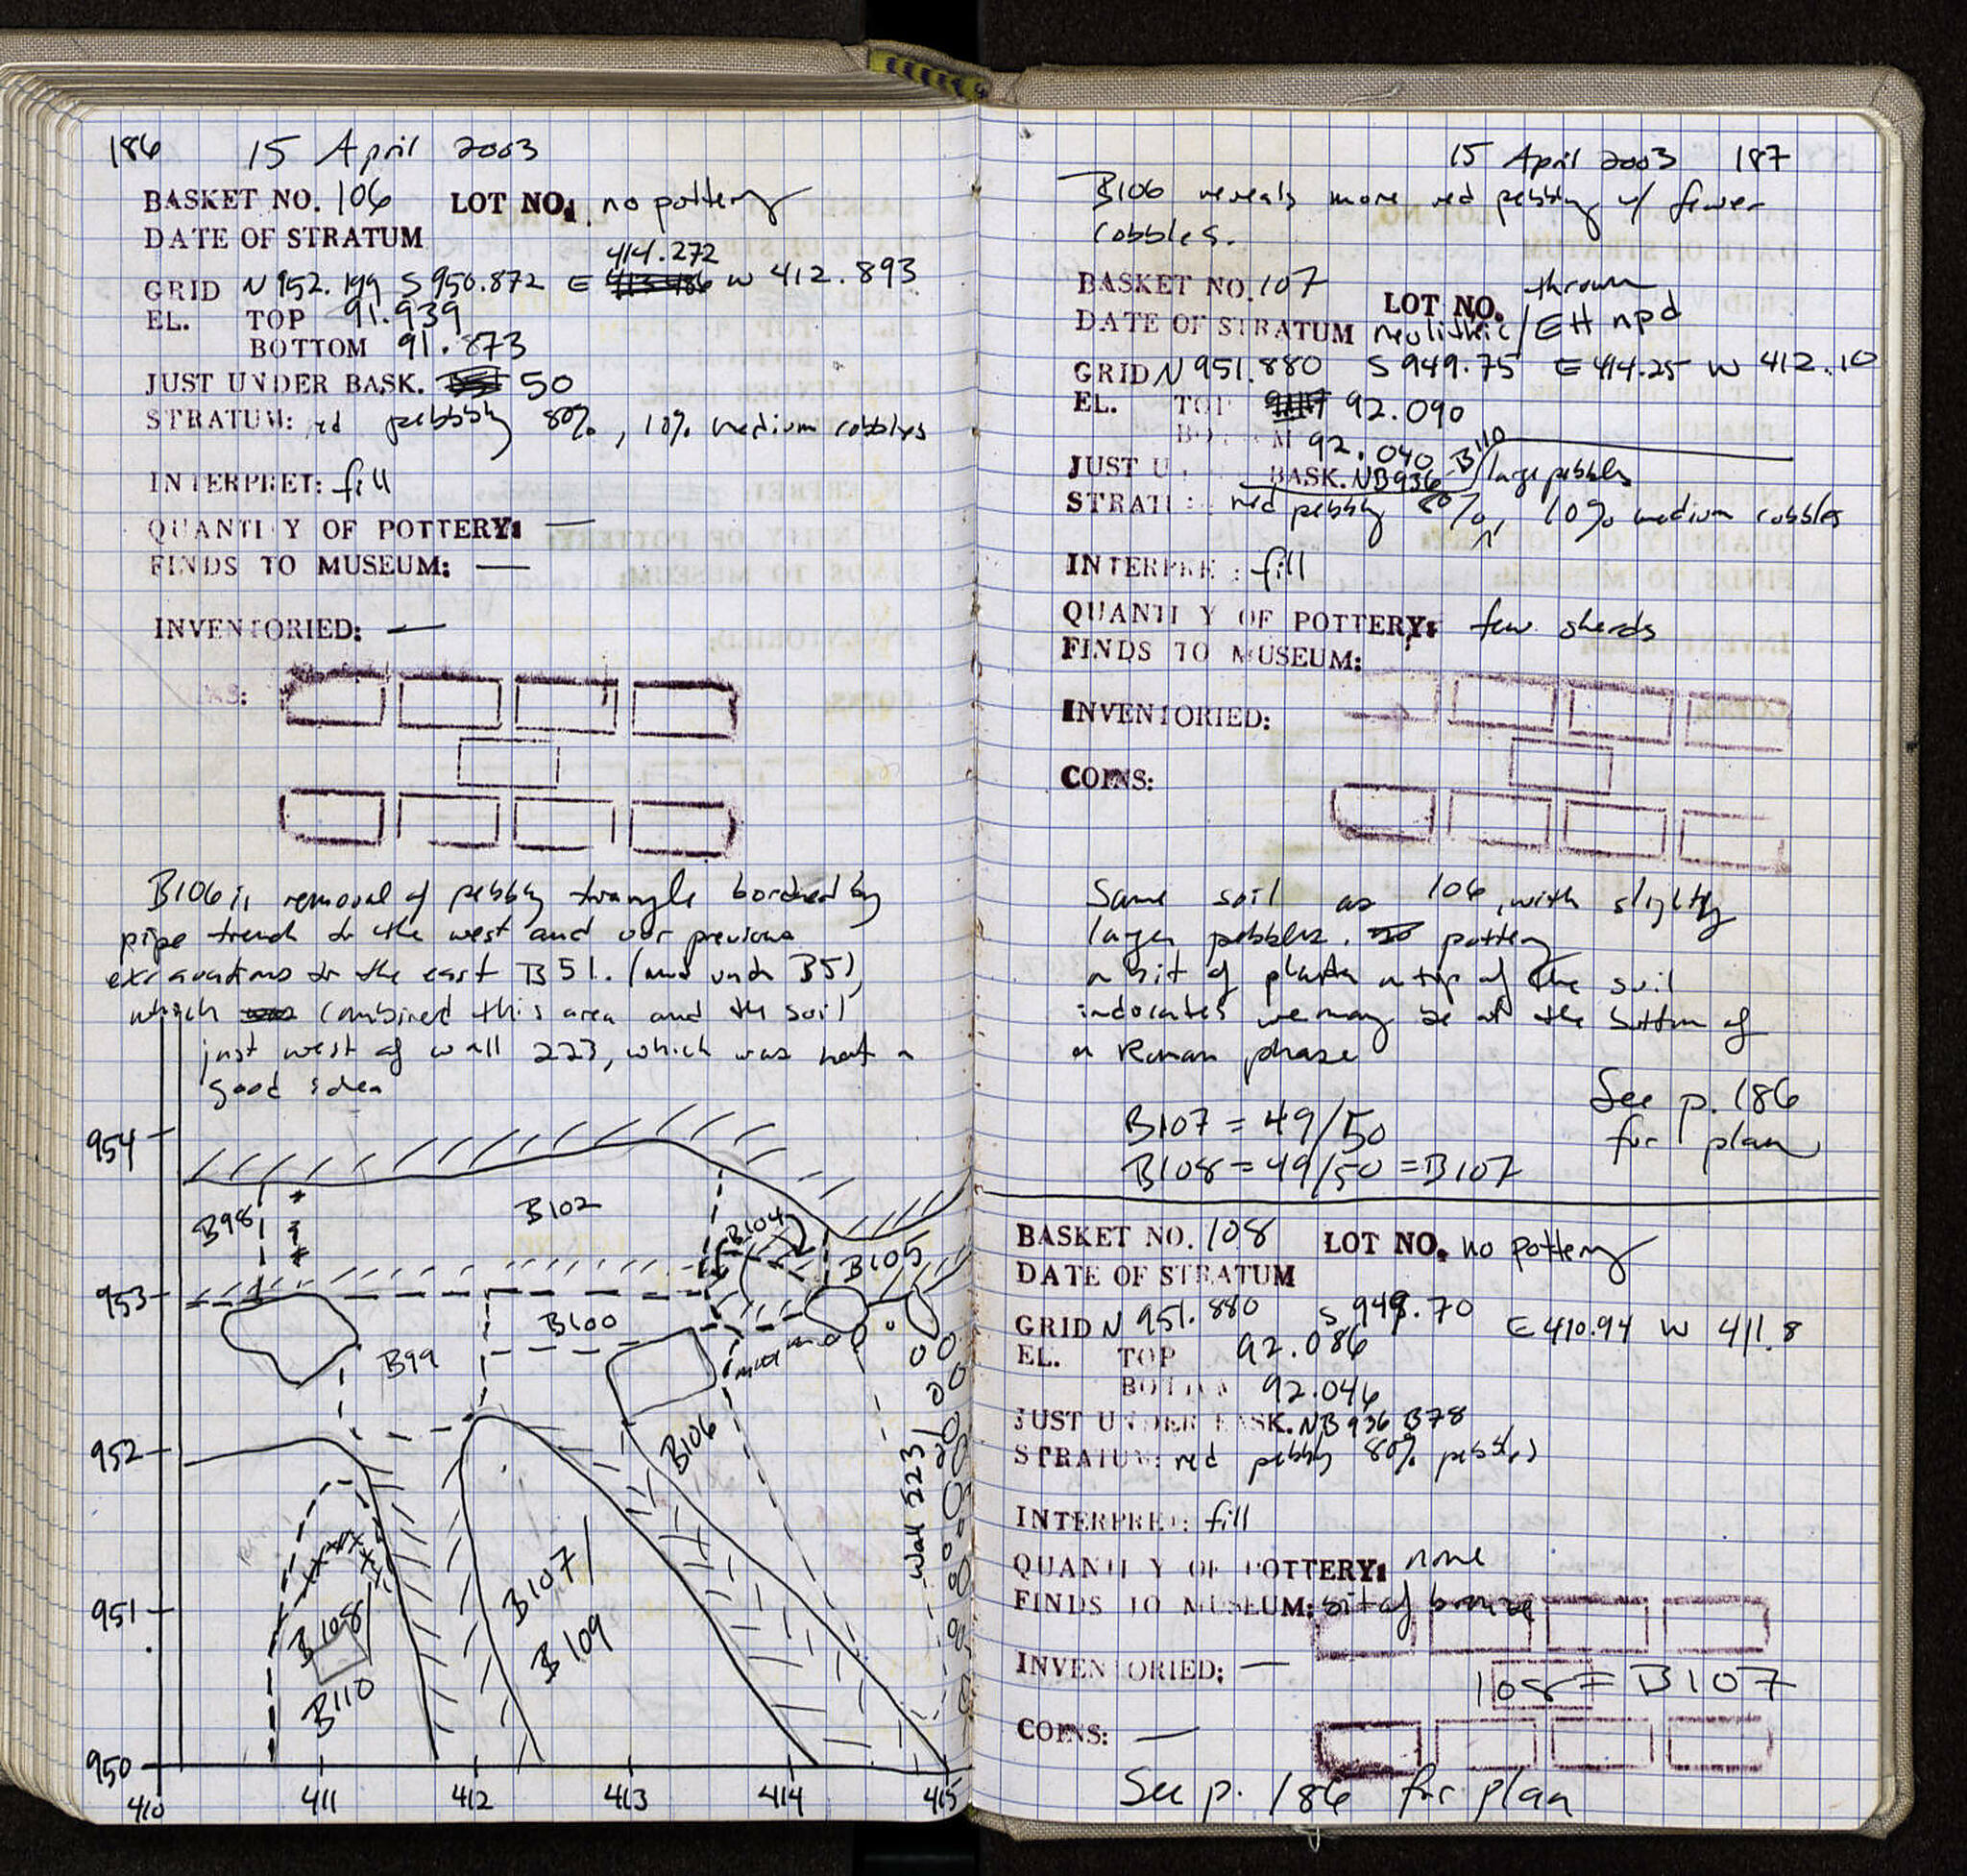 186 15 April 2003
BASKET NO. 106 LOT NO. no pottery
DATE OF STRATUM
414.272
GRID N 952.199 S 950.872 E W 412.893
EL. TOP 91.939
BOTTOM 91.873
JUST UNDER BASK. 50
STRATUM: red pebbly 80%, 10% medium cobbles
INTERPRET: fill
QUANTI Y OF POTTERY: —
FINDS TO MUSEUM: —
INVENTORIED: —
B106 is removal of pebbly triangle bordered by
pipe trench to the west and our previous
excavations to the east B51. (and under B51)
which combined this area and the soil
just west of wall 223, which was not a
good idea
954
B98 B102 B104 B105
953
B100
B99
952
B106
Wall 223
951
B107/
B109
B108/
B110
950
410 411 412 413 414 415
15 April 2003 187
B106 reveals more red pebbly w/ fewer
cobbles.
BASKET NO. 107 LOT NO. thrown
DATE OF STRATUM neolithic/EH npd
GRID N 951.880 S 949.75 E 414.25 W 412.10
EL. TOP 92.090
BO M 92.040
JUST U BASK. NB936 B110
large pebbles
STRATI: red pebbly 80%, 10% medium cobbles
INTERPRE : fill
QUANTI Y OF POTTERY: few sherds
FINDS TO MUSEUM:
INVENTORIED:
COINS:
Same soil as 106, with slightly
larger pebbles. pottery
a bit of plaster atop of the soil
indicates we may be at the bottom of
a Roman phase
See p. 186
for plan
B107 = 49/50
B108 = 49/50 = B107
BASKET NO. 108 LOT NO. no pottery
DATE OF STRATUM
GRID N 951.880 S 949.70 E 410.94 W 411.8
EL. TOP 92.086
BOTTOM 92.046
JUST UNDER BASK. NB936 B78
STRATUM: red pebbly 80% pebbles
INTERPRET: fill
QUANTI Y OF POTTERY: none
FINDS TO MUSEUM: bit of bronze
INVENTORIED: —
108 = B107
COINS: —
See p. 186 for plan